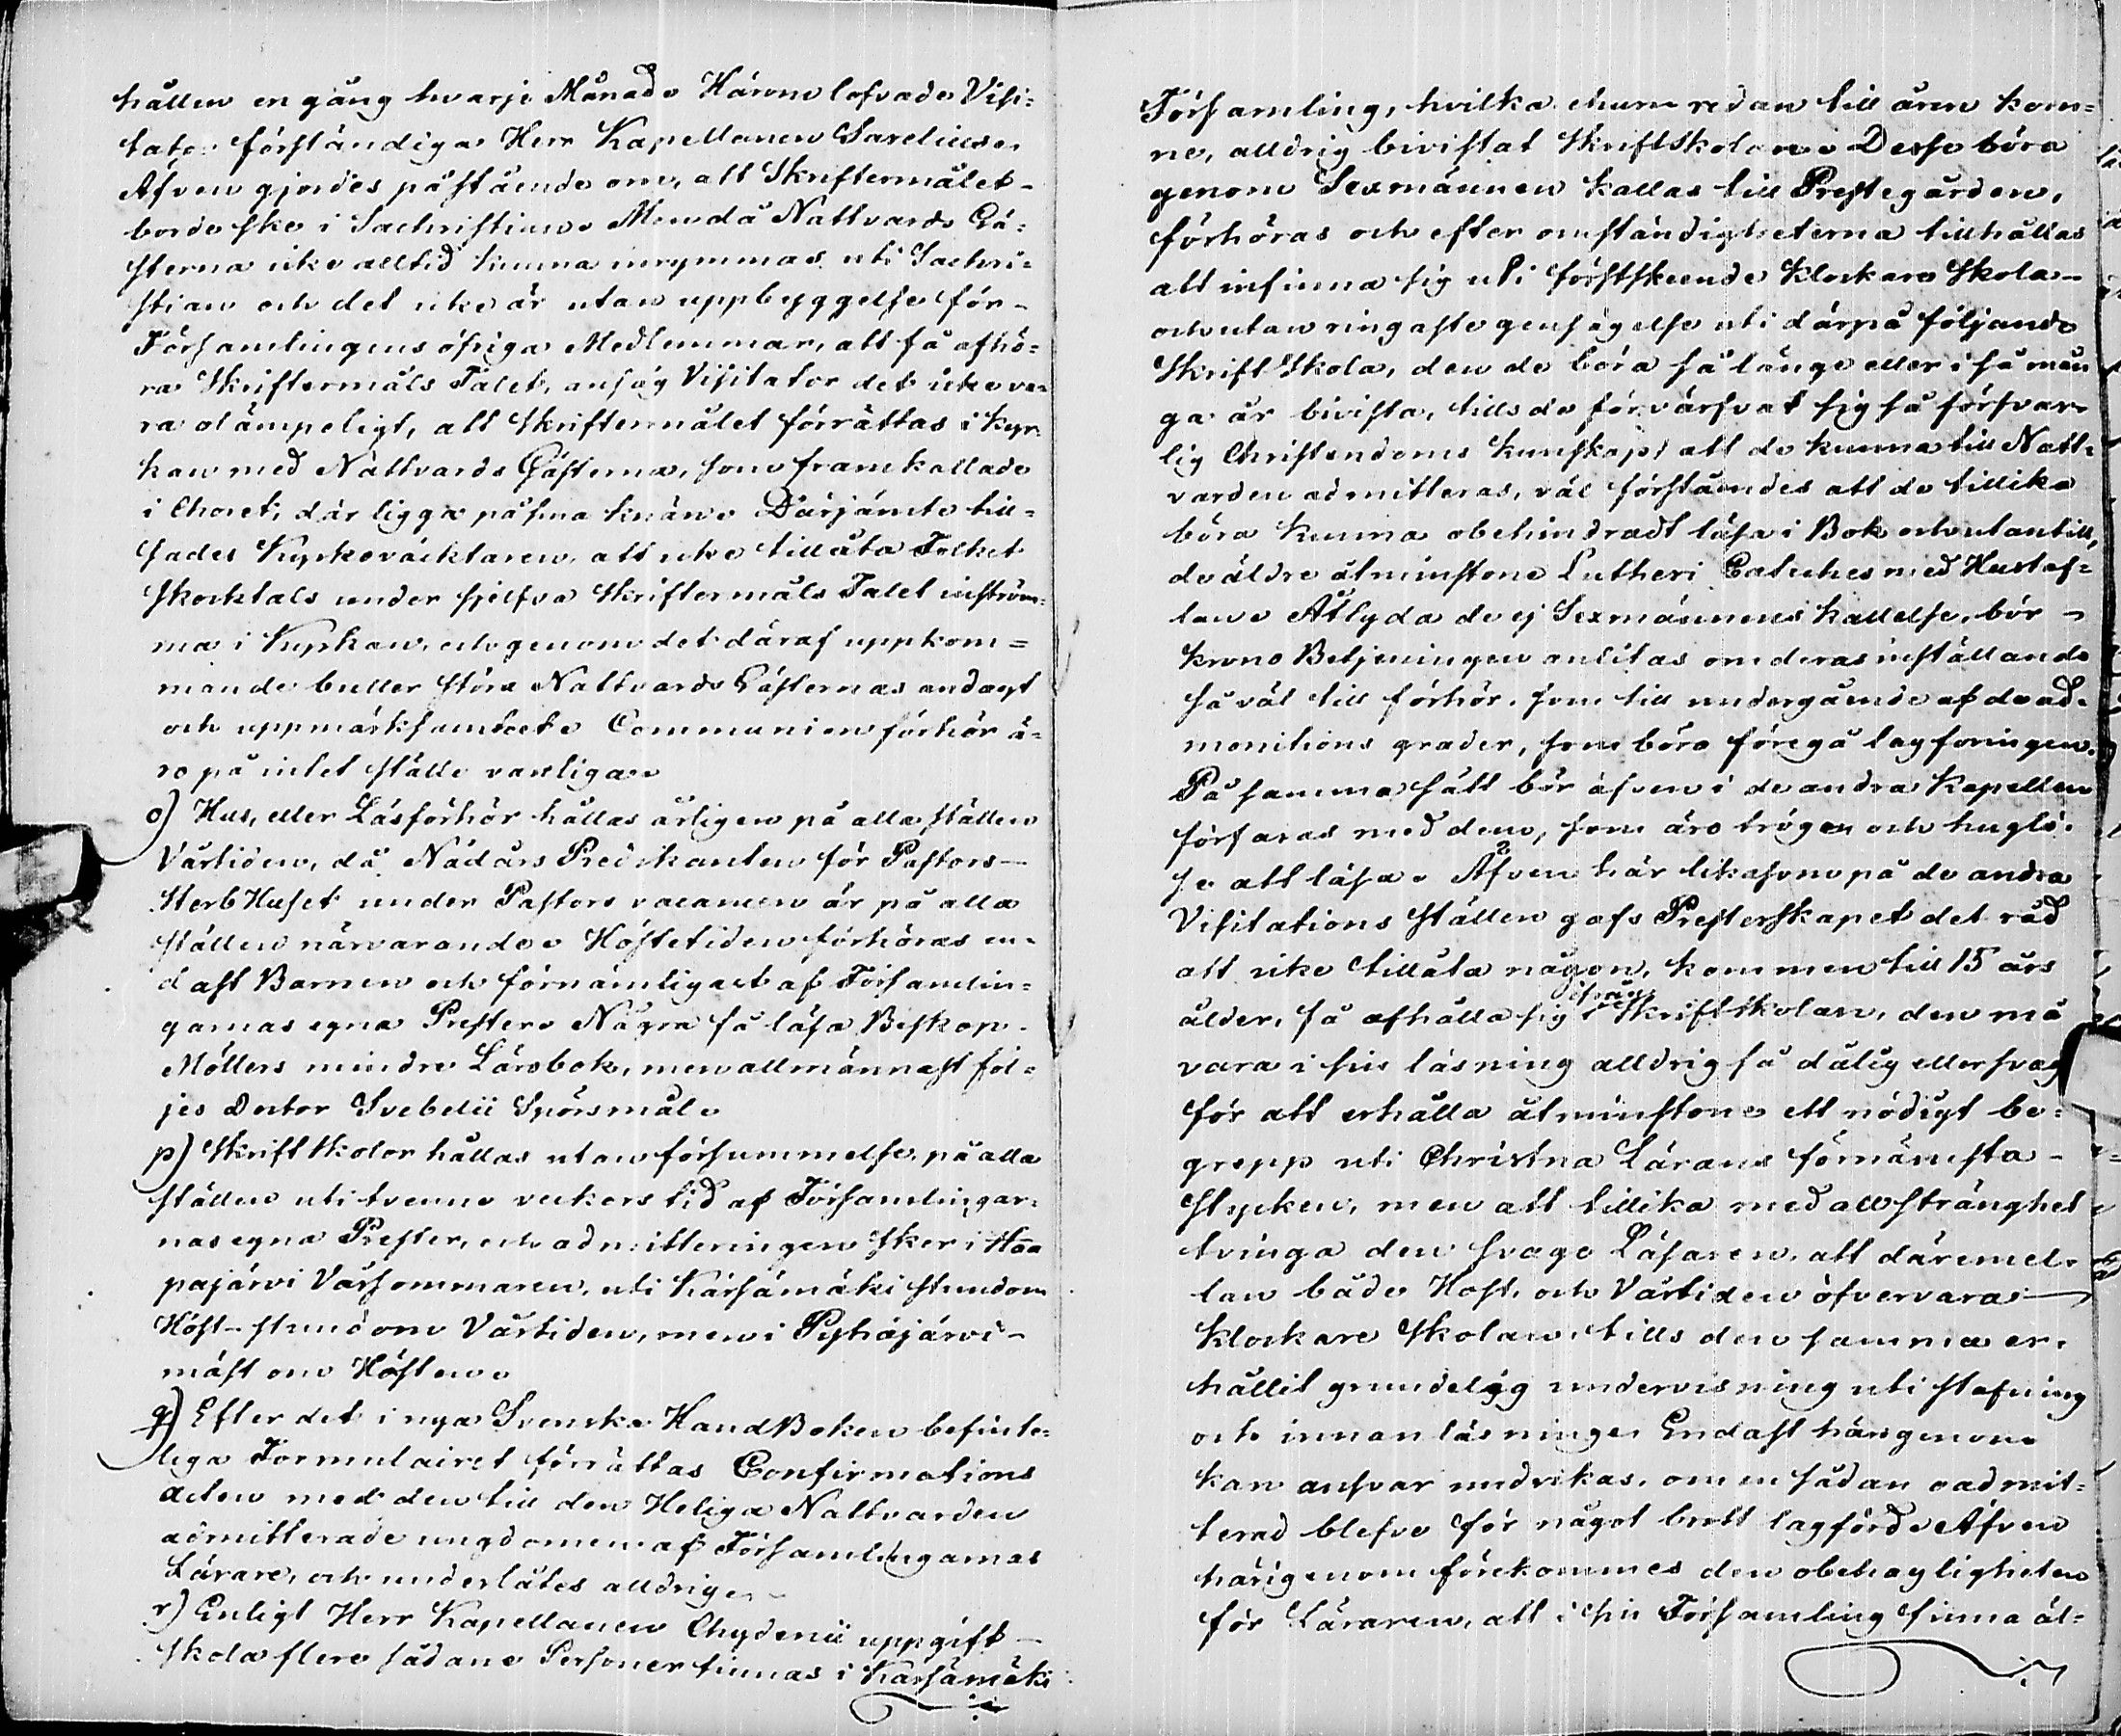 hållen en gång hvarje Månad. Härom lofvade Visi=
tator förständiga Herr Kapellanen Sarelius.
Äfven gjordes påstående om, att Skriftermålet
borde ske i Sachristian. Men då Nattvards Gä=
sterna icke alltid kunna inrymmas uti Sachri=
stian och det icke är utan uppbyggelse för
Församlingens öfriga Medlemmar, att få afhö=
ra Skriftermåls Talet, ansåg Visitator det icke va=
ra olämpeligt, att Skriftermålet förrättas i kyr=
kan med Nattvards Gästerna, som framkallade
i Choret, där ligga på sina knän. Därjämte till=
sades Kyrkoväcktaren, att icke tillåta Folket
skocktals under sjelfva Skriftermåls Talet inström=
ma i Kyrkan, och genom det däraf uppkom=
mande buller störa Nattvards Gästernas andagt
och uppmärksamhet. Communion förhör ä=
ro på intet ställe vanliga.
o) Hus, eller Läsförhör hållas årligen på alla ställen
Vårtiden, då Nådårs Predikanten för Pastors
SterbHuset under Pastors vacancen är på alla
ställen närvarande. Höstetiden förhöras en=
dast Barnen och förnämligast af Församlin=
garnas egna Prester. Några få läsa Biskop
Möllers mindre Lärobok, men allmännast föl=
jes Doctor Svebelii Spörsmål.
p) Skriftskolor hållas utan försummelse på alla
ställen uti tvenne veckors tid af Församlingar=
nas egna Prester, och admitteringen sker i Haa
pajärvi Vårsommaren, uti Kärsämäki stundom
Höst- stundom Vårtiden, men i Pyhäjärvi
mäst om Hösten.
q) Efter det i nya Svenska HandBoken befinte=
liga Formulairet förrättas Confirmations
acten med den till den Heliga Nattvarden
admitterade ungdomen af Församlingarnas
Lärare, och underlåtes alldrig.
r) Enligt Herr Kapellanen Chydenii uppgift
skola flere sådane Personer finnas i Kärsämäki
Församling, hvilka ehuru redan till åren kom=
ne, alldrig bivistat Skriftskolan. Desse böra
genom Sexmännen kallas till Prestegården,
förhöras och efter omständigheterna tillhållas
att infinna sig uti förstskeende Klockare Skola
och utan ringaste gensägelse uti därpå följande
Skrift Skola, den de böra så länge eller i så mån
ga år bivista, tills de förvärfvat sig så försvar=
lig Christendoms kunskap, att de kunna till Natt=
varden admitteras, väl förståendes att de tillika
böra kunna obehindradt läsa i Bok och utantill,
de äldre åtminstone Lutheri Catches med Hustaf=
lan. Åtlyda de ej Sexmännens kallelse, bör
krono Betjeningen anlitas om deras inställande
så väl till förhör, som till undergående af de ad=
monitions grader, som böra föregå lagföringen.
På samma sätt bör äfven i de andra Kapellen
förfaras med dem, som äro tröge och huglö=
se att läsa. Äfven här likasom på de andra
Visitations ställen gafs Presterskapet det råd
att icke tillåta någon, kommen till 15 års
ålder, få afhålla sig ifrån Skriftskolan, den må
vara i sin läsning alldrig så dålig eller svag
för att erhålla åtminstone ett nödigt be=
grepp uti Christna Lärans förnämsta
stycken, men att tillika med all stränghet
tvinga den svage Läsaren, att däremel=
lan både Höst, och Vårtiden öfvervara
Klockare Skolan, tills den samma er=
hållit grundelig undervisning uti stafning
och innanläsning. Endast härigenom
kan ansvar undvikas, om en sådan oadmit=
terad blefve för något brott lagförd. Äfven
härigenom förekommes den obehagligheten
för Läraren, att i sin Församling finna äl=